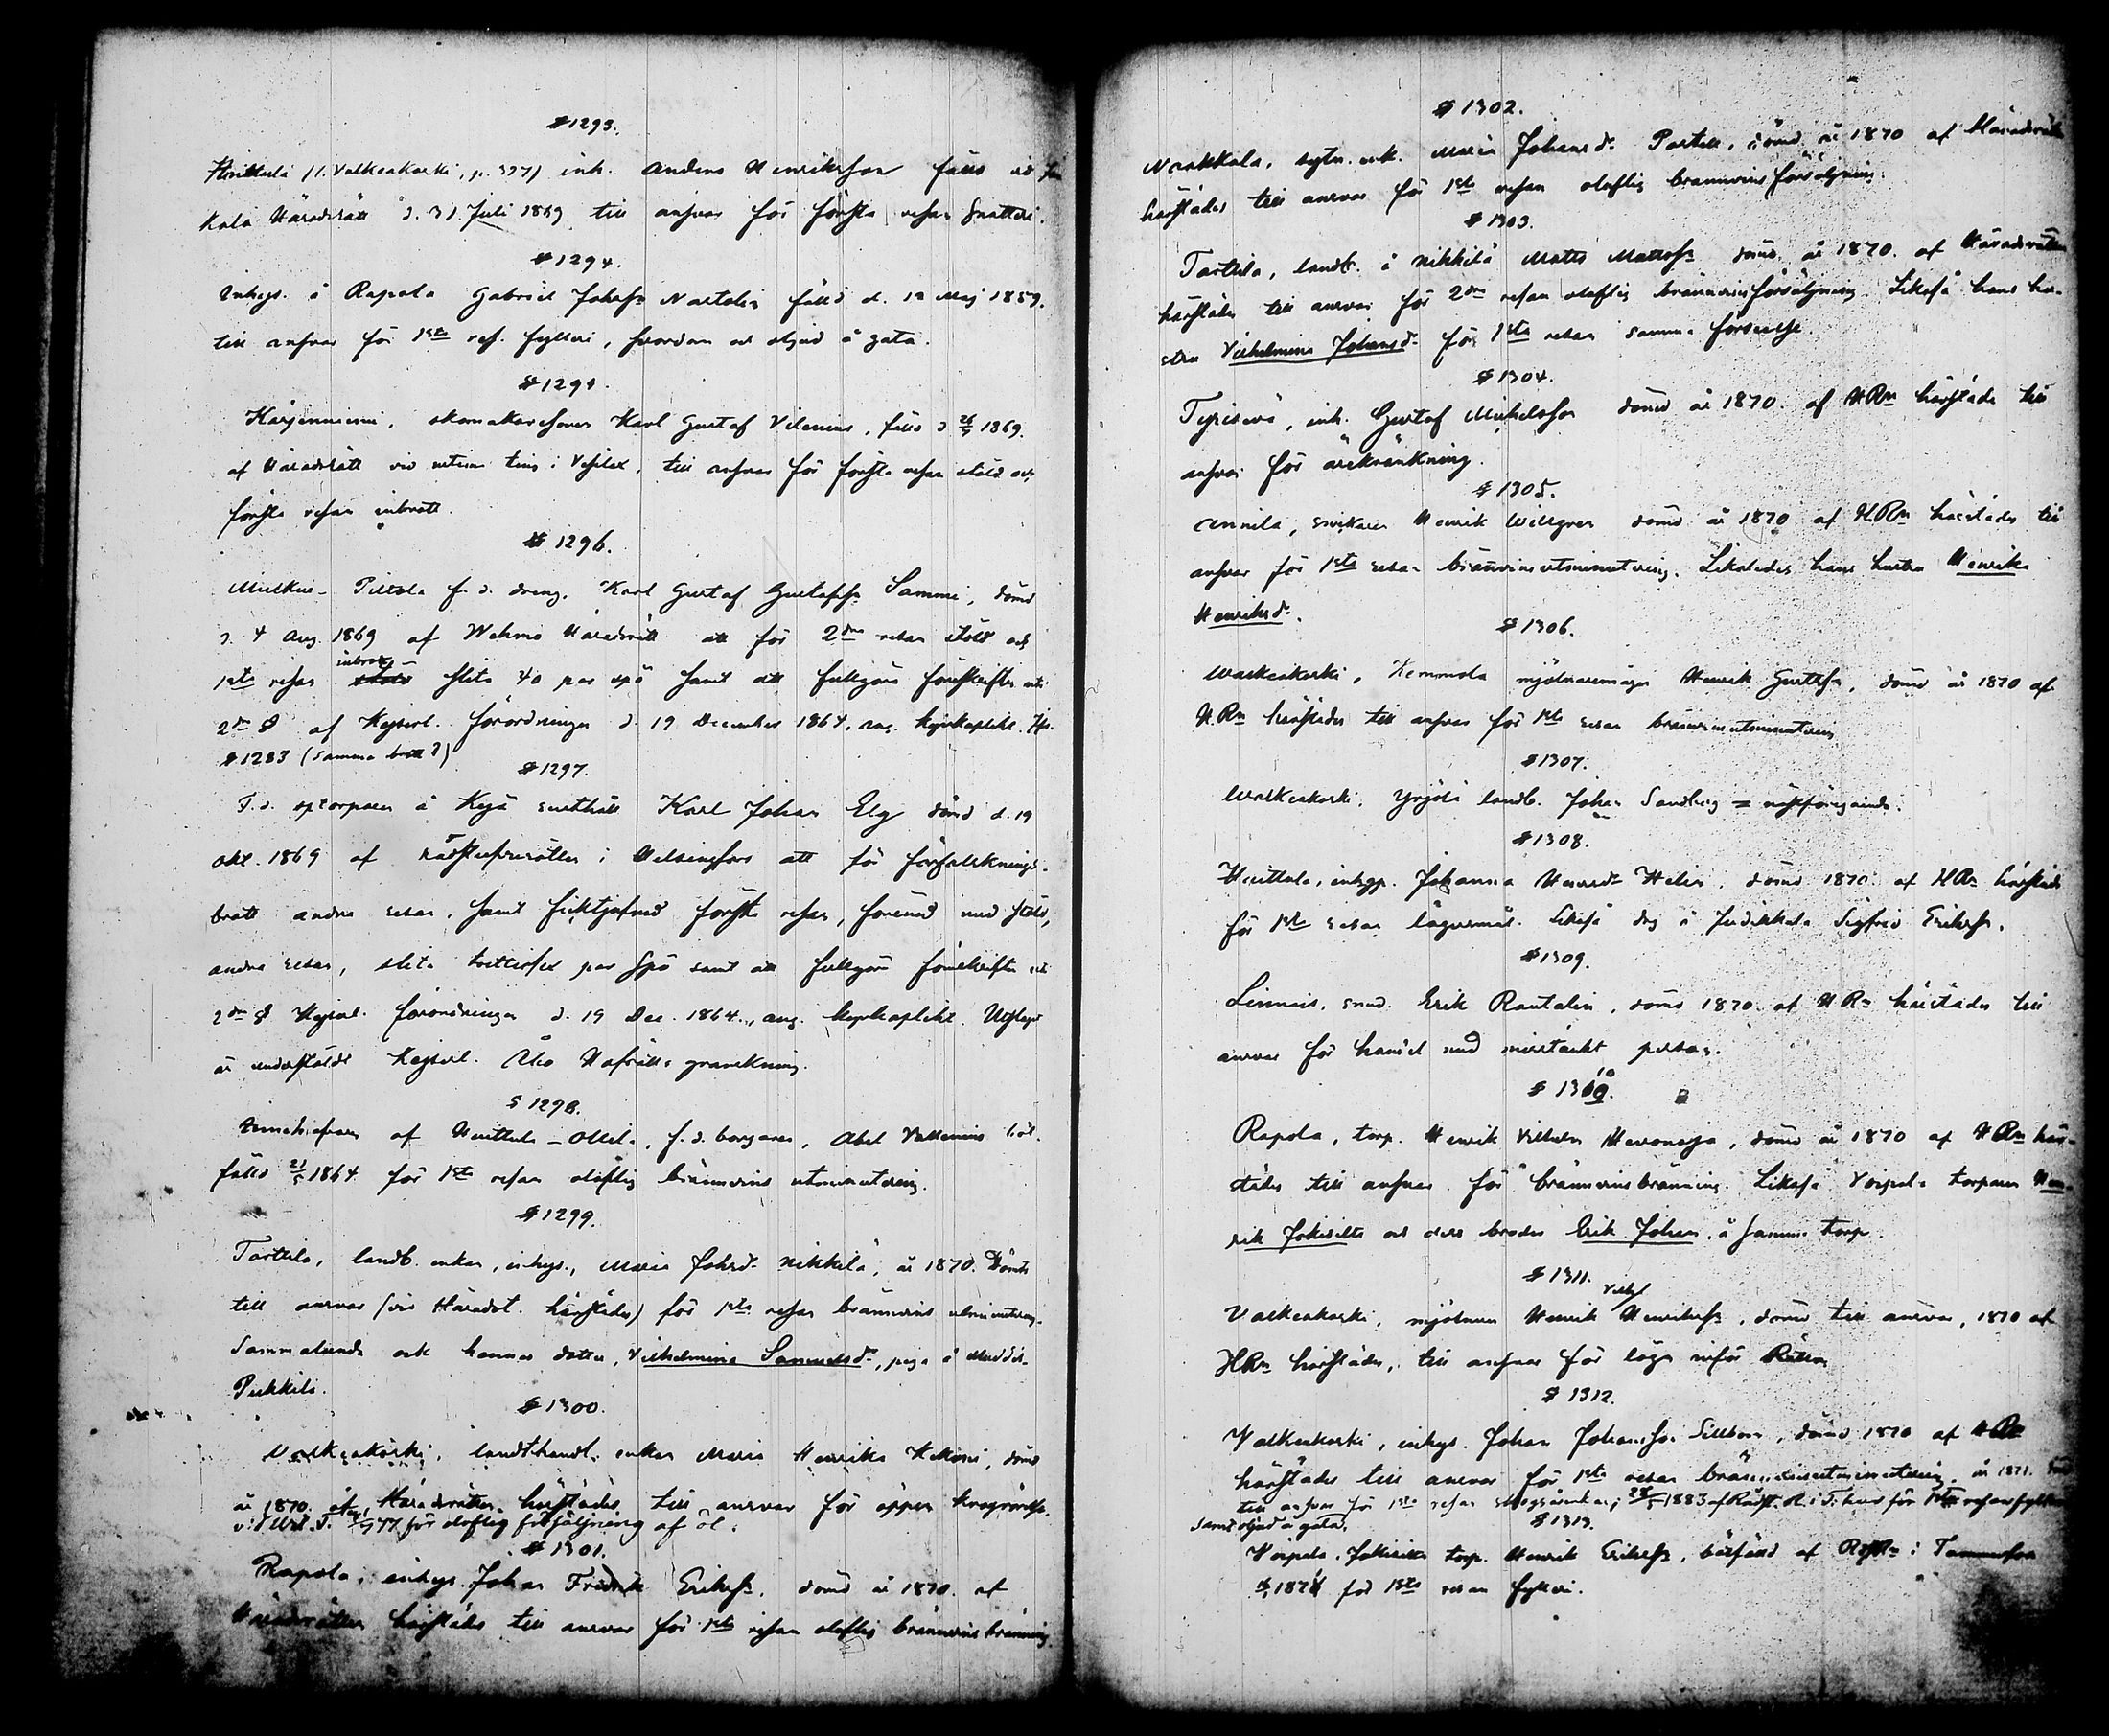 § 1293.
Huittula (1. Valkeakoski, p. 397) inh. Anders Henriksson fälld vid
kala Häradsrätt d. 31 Juli 1869 till ansvar för första resan snatteri.
§ 1294.
Inhys. å Rapola Gabriel Johsson Nortolin fälld d. 12 Maj 1859.
till ansvar för 1sta res. fylleri, svordom och oljud å gata.
§ 1295.
Kärjenniemi, skomakaresonen Karl Gustaf Vilenius, fälld d 1869.
af Häradsrätt vid ting i Vesilax, till ansvar för första resan stöld och
första resan inbrott.
§ 1296.
Mälkiä - Pietola f. d. dreng. Karl Gustaf Gustafss. Sammi, dömd
d. 4 Aug. 1869 af Wehmo Häradsrätt att för 2dra resan stöld och
1sta resan inbrott slita 40 par spö samt att fullgöra föreskriften uti
2dra § af Kejserl. förordningen d. 19 December 1864, ang. kyrkoplikt. Jfr.
§ 1283 (samma brott?)
§ 1297.
F. d. sptorparen å Kejä rusthåll Karl Johan Elg dömd d. 19
okt. 1869 af rådstufvurätten i Helsingfors att för förfalsknings-
brott andra resan, samt ficktjufnad första resan, förenad med stöld,
andra resan, slita trettiosex par spö samt att fullgöra föreskriften uti
2dra § Kejserl. förordningen d. 19 Dec. 1864., ang. kyrkoplikt. Utslaget
är underställdt Kejserl. Åbo Hofrätts granskning.
§ 1298.
Innehafvaren af Huittula - Ollila, f. d. borgaren, Abel Vallenius böt-
fälld 1864 för 1sta resan oloflig brännvins utminutering.
§ 1299.
Tarttila, landb. enkan, inhys., Maria Johsd. Nikkilä, år 1870. Dömts
till ansvar (vid Häradst. härstädes) för 1sta resan brännvins utminutering.
Sammalunda ock hennes dotter, Vilhelmina Samuelsd., piga å
Pukkila.
§ 1300.
Valkeakoski, landthandl. enkan Maria Henriks Kekoni, dömd
år 1870. af Häradsrätten härstädes till ansvar för öppen krogrörelse.
77 för oloflig försäljning af öl.
§ 1301.
Rapola, inhys. Johan Fredrik Erikss., dömd år 1870. af
Häradsrätten härstädes till ansvar för 1sta resan oloflig brännvins bränning.
§ 1302.
Nrakkala, sytn. enk. Maria Johansd. Partell, dömd år 1870 af Häradsrätten
härstädes till ansvar för 1sta resan oloflig brännvins försäljning.
§ 1303.
Tarttila, landb. å Nikkilä Matts Mattss. dömd år 1870. af Häradsrätten
härstädes till ansvar för 2dra resan oloflig brännvinsförsäljning. Likaså hans hu-
stru Vilhelmina Johansd. för 1sta resan samma förseelse.
§ 1304.
Tyrisevä, inh. Gustaf Michelsson dömd år 1870. af HRn härstädes till
ansvar för ärekränkning.
§ 1305.
Annila, snickaren Henrik Willgren dömd år 1870 af H.Rn härstädes till
ansvar för 1sta resan brännvinsutminutering. Likaledes hans hustru Henrika
Henriksd.
§ 1306.
Walkeakoski, Kemmola mjölnaremågen Henrik Gustfss., dömd år 1870 af
H.Rn härstädes till ansvar för 1sta resan brännvinsutminutering
§ 1307.
Walkeakoski, Yrjölä landb. Johan Sandberg = nästföregående.
§ 1308.
Huittula, inhyp. Johanna Henrsd. Helin, dömd 1870. af HRn härstädes
för 1sta resan lägersmål. Likaså drg å Judikkala Sigfrid Erikss.
§ 1309.
Linnais, smed. Erik Rautalin, dömd 1870. af HRn härstädes till
ansvar för handel med misstänkt person.
§ 1310.
Rapola, torp. Henrik Vilhelm Hevonoja, dömd år 1870 af HRn här-
städes till ansvar för brännvinsbränning. Likaså Voipala torparen Hen-
rik Jokisilta och dess broder Erik Johan, å samma torp.
§ 1311.
Valkeakoski, mjölnaren Henrik Vilh Henrikss., dömd till ansvar, 1870 af
HRn härstädes, till ansvar för lögn inför Rätten
§ 1312.
Valkeakoski, inhys. Johan Johansson Sillbom, dömd 1870 af HRn
härstädes till ansvar för 1sta resan brännvinsutminutering. år 1871.
till ansvar för 1sta resan 1883 af Rådst. R. i T:fors för 1sta resan fylleri
samt oljud å gata.
§ 1313.
Voipala, Jokisilta torp. Henrik Erikss., bötfälld af i Tammerfors
1874 för 1sta resan fylleri.